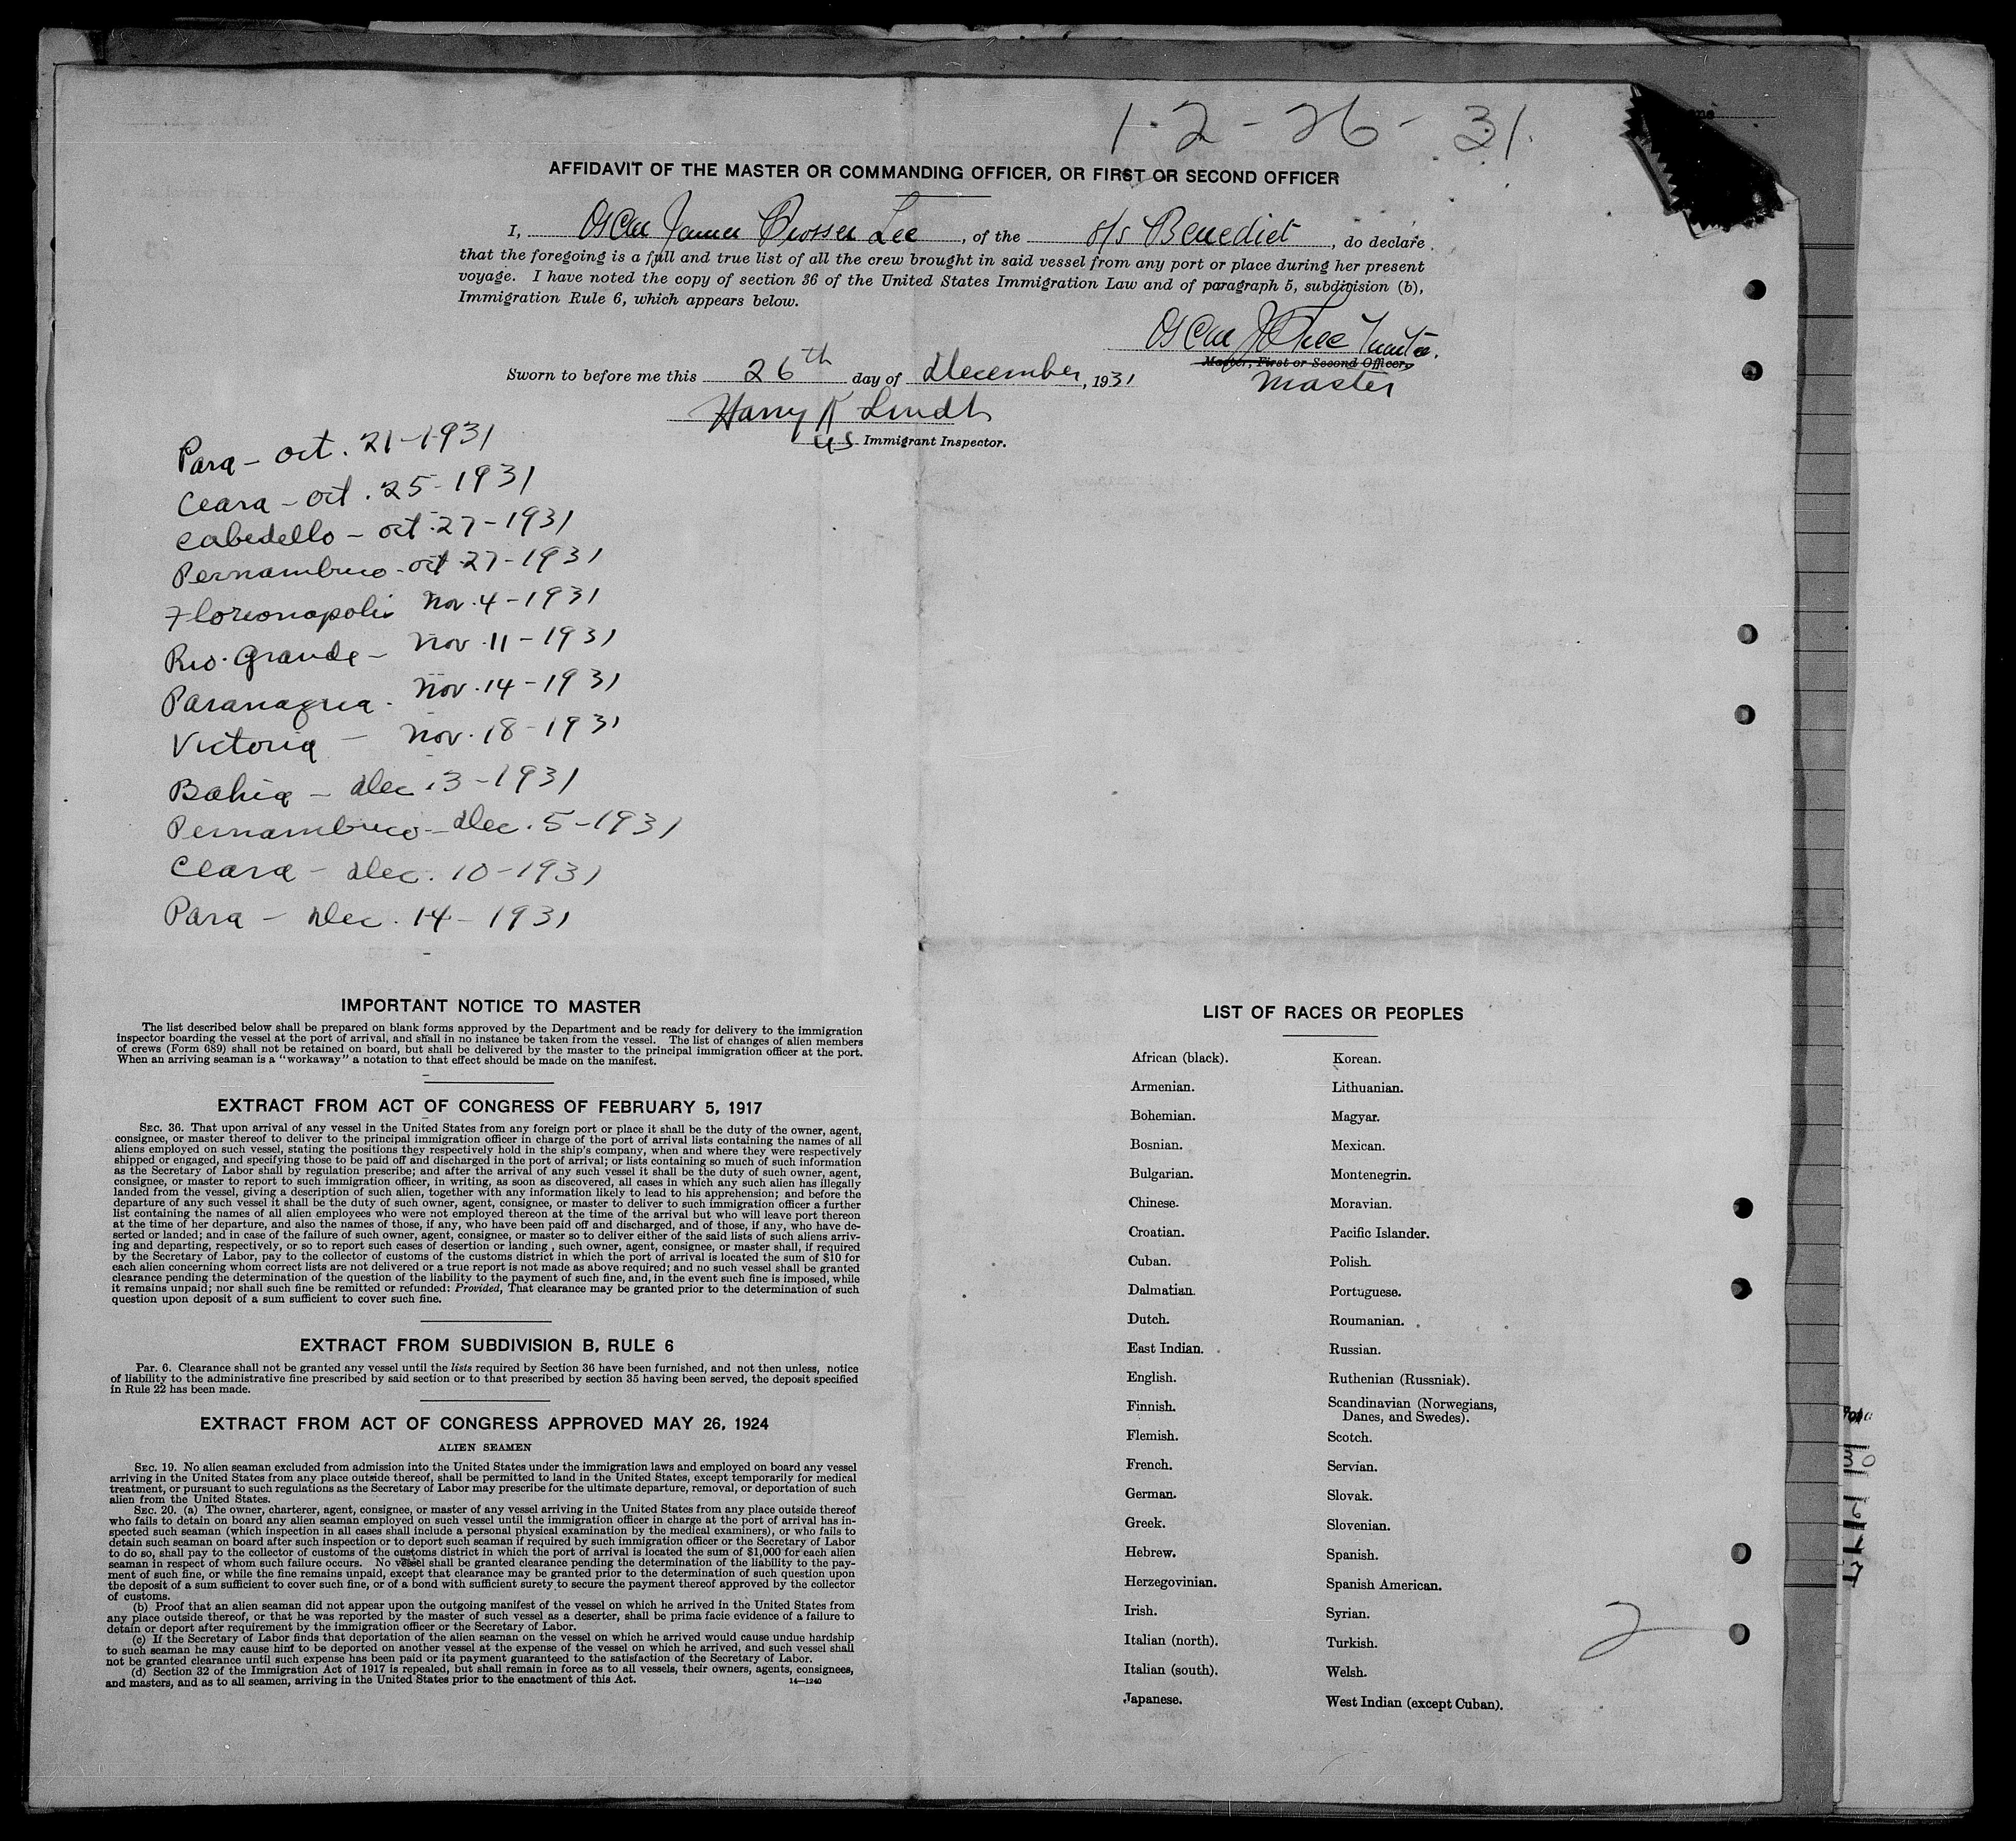 12-26-31.
AFFIDAVIT OF THE MASTER OR COMMANDING OFFICER, OR FIRST OR SECOND OFFICER
I, Oscar James Prosser Lee, of the s/s Benedict, do declare
that the foregoing is a full and true list of all the crew brought in said vessel from any port or place during her present
voyage. I have noted the copy of section 36 of the United States Immigration Law and of paragraph 5, subdivision (b),
Immigration Rule 6, which appears below.
Oscar J P Lee Master.
Master, First or Second Officer.
Master
Sworn to before me this 26th day of December, 1931
Harry R Lindt
US Immigrant Inspector.
Para - Oct. 21-1931
Ceara - Oct. 25-1931
Cabedello - Oct. 27-1931
Pernambuco - Oct 27-1931
Florionopolis Nov. 4-1931
Rio. Grande - Nov. 11-1931
Paranagua - Nov. 14-1931
Victoria - Nov. 18-1931
Bahia - Dec. 3-1931
Pernambuco - Dec. 5-1931
Ceara - Dec. 10-1931
Para - Dec. 14-1931
IMPORTANT NOTICE TO MASTER
The list described below shall be prepared on blank forms approved by the Department and be ready for delivery to the immigration
inspector boarding the vessel at the port of arrival, and shall in no instance be taken from the vessel. The list of changes of alien members
of crews (Form 689) shall not be retained on board, but shall be delivered by the master to the principal immigration officer at the port.
When an arriving seaman is a "workaway" a notation to that effect should be made on the manifest.
EXTRACT FROM ACT OF CONGRESS OF FEBRUARY 5, 1917
SEC. 36. That upon arrival of any vessel in the United States from any foreign port or place it shall be the duty of the owner, agent,
consignee, or master thereof to deliver to the principal immigration officer in charge of the port of arrival lists containing the names of all
aliens employed on such vessel, stating the positions they respectively hold in the ship's company, when and where they were respectively
shipped or engaged, and specifying those to be paid off and discharged in the port of arrival; or lists containing so much of such information
as the Secretary of Labor shall by regulation prescribe; and after the arrival of any such vessel it shall be the duty of such owner, agent,
consignee, or master to report to such immigration officer, in writing, as soon as discovered, all cases in which any such alien has illegally
landed from the vessel, giving a description of such alien, together with any information likely to lead to his apprehension; and before the
departure of any such vessel it shall be the duty of such owner, agent, consignee, or master to deliver to such immigration officer a further
list containing the names of all alien employees who were not employed thereon at the time of the arrival but who will leave port thereon
at the time of her departure, and also the names of those, if any, who have been paid off and discharged, and of those, if any, who have de-
serted or landed; and in case of the failure of such owner, agent, consignee, or master so to deliver either of the said lists of such aliens arriv-
ing and departing, respectively, or so to report such cases of desertion or landing , such owner, agent, consignee, or master shall, if required
by the Secretary of Labor, pay to the collector of customs of the customs district in which the port of arrival is located the sum of $10 for
each alien concerning whom correct lists are not delivered or a true report is not made as above required; and no such vessel shall be granted
clearance pending the determination of the question of the liability to the payment of such fine, and, in the event such fine is imposed, while
it remains unpaid; nor shall such fine be remitted or refunded: Provided, That clearance may be granted prior to the determination of such
question upon deposit of a sum sufficient to cover such fine.
EXTRACT FROM SUBDIVISION B, RULE 6
Par. 6. Clearance shall not be granted any vessel until the lists required by Section 36 have been furnished, and not then unless, notice
of liability to the administrative fine prescribed by said section or to that prescribed by section 35 having been served, the deposit specified
in Rule 22 has been made.
EXTRACT FROM ACT OF CONGRESS APPROVED MAY 26, 1924
ALIEN SEAMEN
SEC. 19. No alien seaman excluded from admission into the United States under the immigration laws and employed on board any vessel
arriving in the United States from any place outside thereof, shall be permitted to land in the United States, except temporarily for medical
treatment, or pursuant to such regulations as the Secretary of Labor may prescribe for the ultimate departure, removal, or deportation of such
alien from the United States.
SEC. 20. (a) The owner, charterer, agent, consignee, or master of any vessel arriving in the United States from any place outside thereof
who fails to detain on board any alien seaman employed on such vessel until the immigration officer in charge at the port of arrival has in-
spected such seaman (which inspection in all cases shall include a personal physical examination by the medical examiners), or who fails to
detain such seaman on board after such inspection or to deport such seaman if required by such immigration officer or the Secretary of Labor
to do so, shall pay to the collector of customs of the customs district in which the port of arrival is located the sum of $1,000 for each alien
seaman in respect of whom such failure occurs. No vessel shall be granted clearance pending the determination of the liability to the pay-
ment of such fine, or while the fine remains unpaid, except that clearance may be granted prior to the determination of such question upon
the deposit of a sum sufficient to cover such fine, or of a bond with sufficient surety to secure the payment thereof approved by the collector
of customs.
(b) Proof that an alien seaman did not appear upon the outgoing manifest of the vessel on which he arrived in the United States from
any place outside thereof, or that he was reported by the master of such vessel as a deserter, shall be prima facie evidence of a failure to
detain or deport after requirement by the immigration officer or the Secretary of Labor.
(c) If the Secretary of Labor finds that deportation of the alien seaman on the vessel on which he arrived would cause undue hardship
to such seaman he may cause him to be deported on another vessel at the expense of the vessel on which he arrived, and such vessel shall
not be granted clearance until such expense has been paid or its payment guaranteed to the satisfaction of the Secretary of Labor.
(d) Section 32 of the Immigration Act of 1917 is repealed, but shall remain in force as to all vessels, their owners, agents, consignees,
and masters, and as to all seamen, arriving in the United States prior to the enactment of this Act.
14—1240
LIST OF RACES OR PEOPLES
African (black).
Armenian.
Bohemian.
Bosnian.
Bulgarian.
Chinese.
Croatian.
Cuban.
Dalmatian.
Dutch.
East Indian.
English.
Finnish.
Flemish.
French.
German.
Greek.
Hebrew.
Herzegovinian.
Irish.
Italian (north).
Italian (south).
Japanese.
Korean.
Lithuanian.
Magyar.
Mexican.
Montenegrin.
Moravian.
Pacific Islander.
Polish.
Portuguese.
Roumanian.
Russian.
Ruthenian (Russniak).
Scandinavian (Norwegians,
Danes, and Swedes).
Scotch.
Servian.
Slovak.
Slovenian.
Spanish.
Spanish American.
Syrian.
Turkish.
Welsh.
West Indian (except Cuban).
2